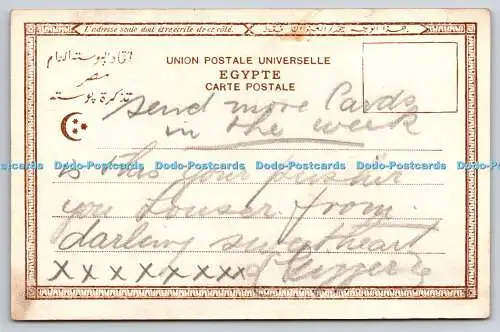 L'adresse seule doit être écrite de ce côté.
اتحاد البوستة العام
مصر
تذكرة بوستة
UNION POSTALE UNIVERSELLE
EGYPTE
CARTE POSTALE
send more Cards
in the week
Dodo-Postcards Dodo-Postcards Dodo-Postcards Dodo-Postcards Dodo-Postcards
is this your
you from
darling sweetheart
x x x x x x x x